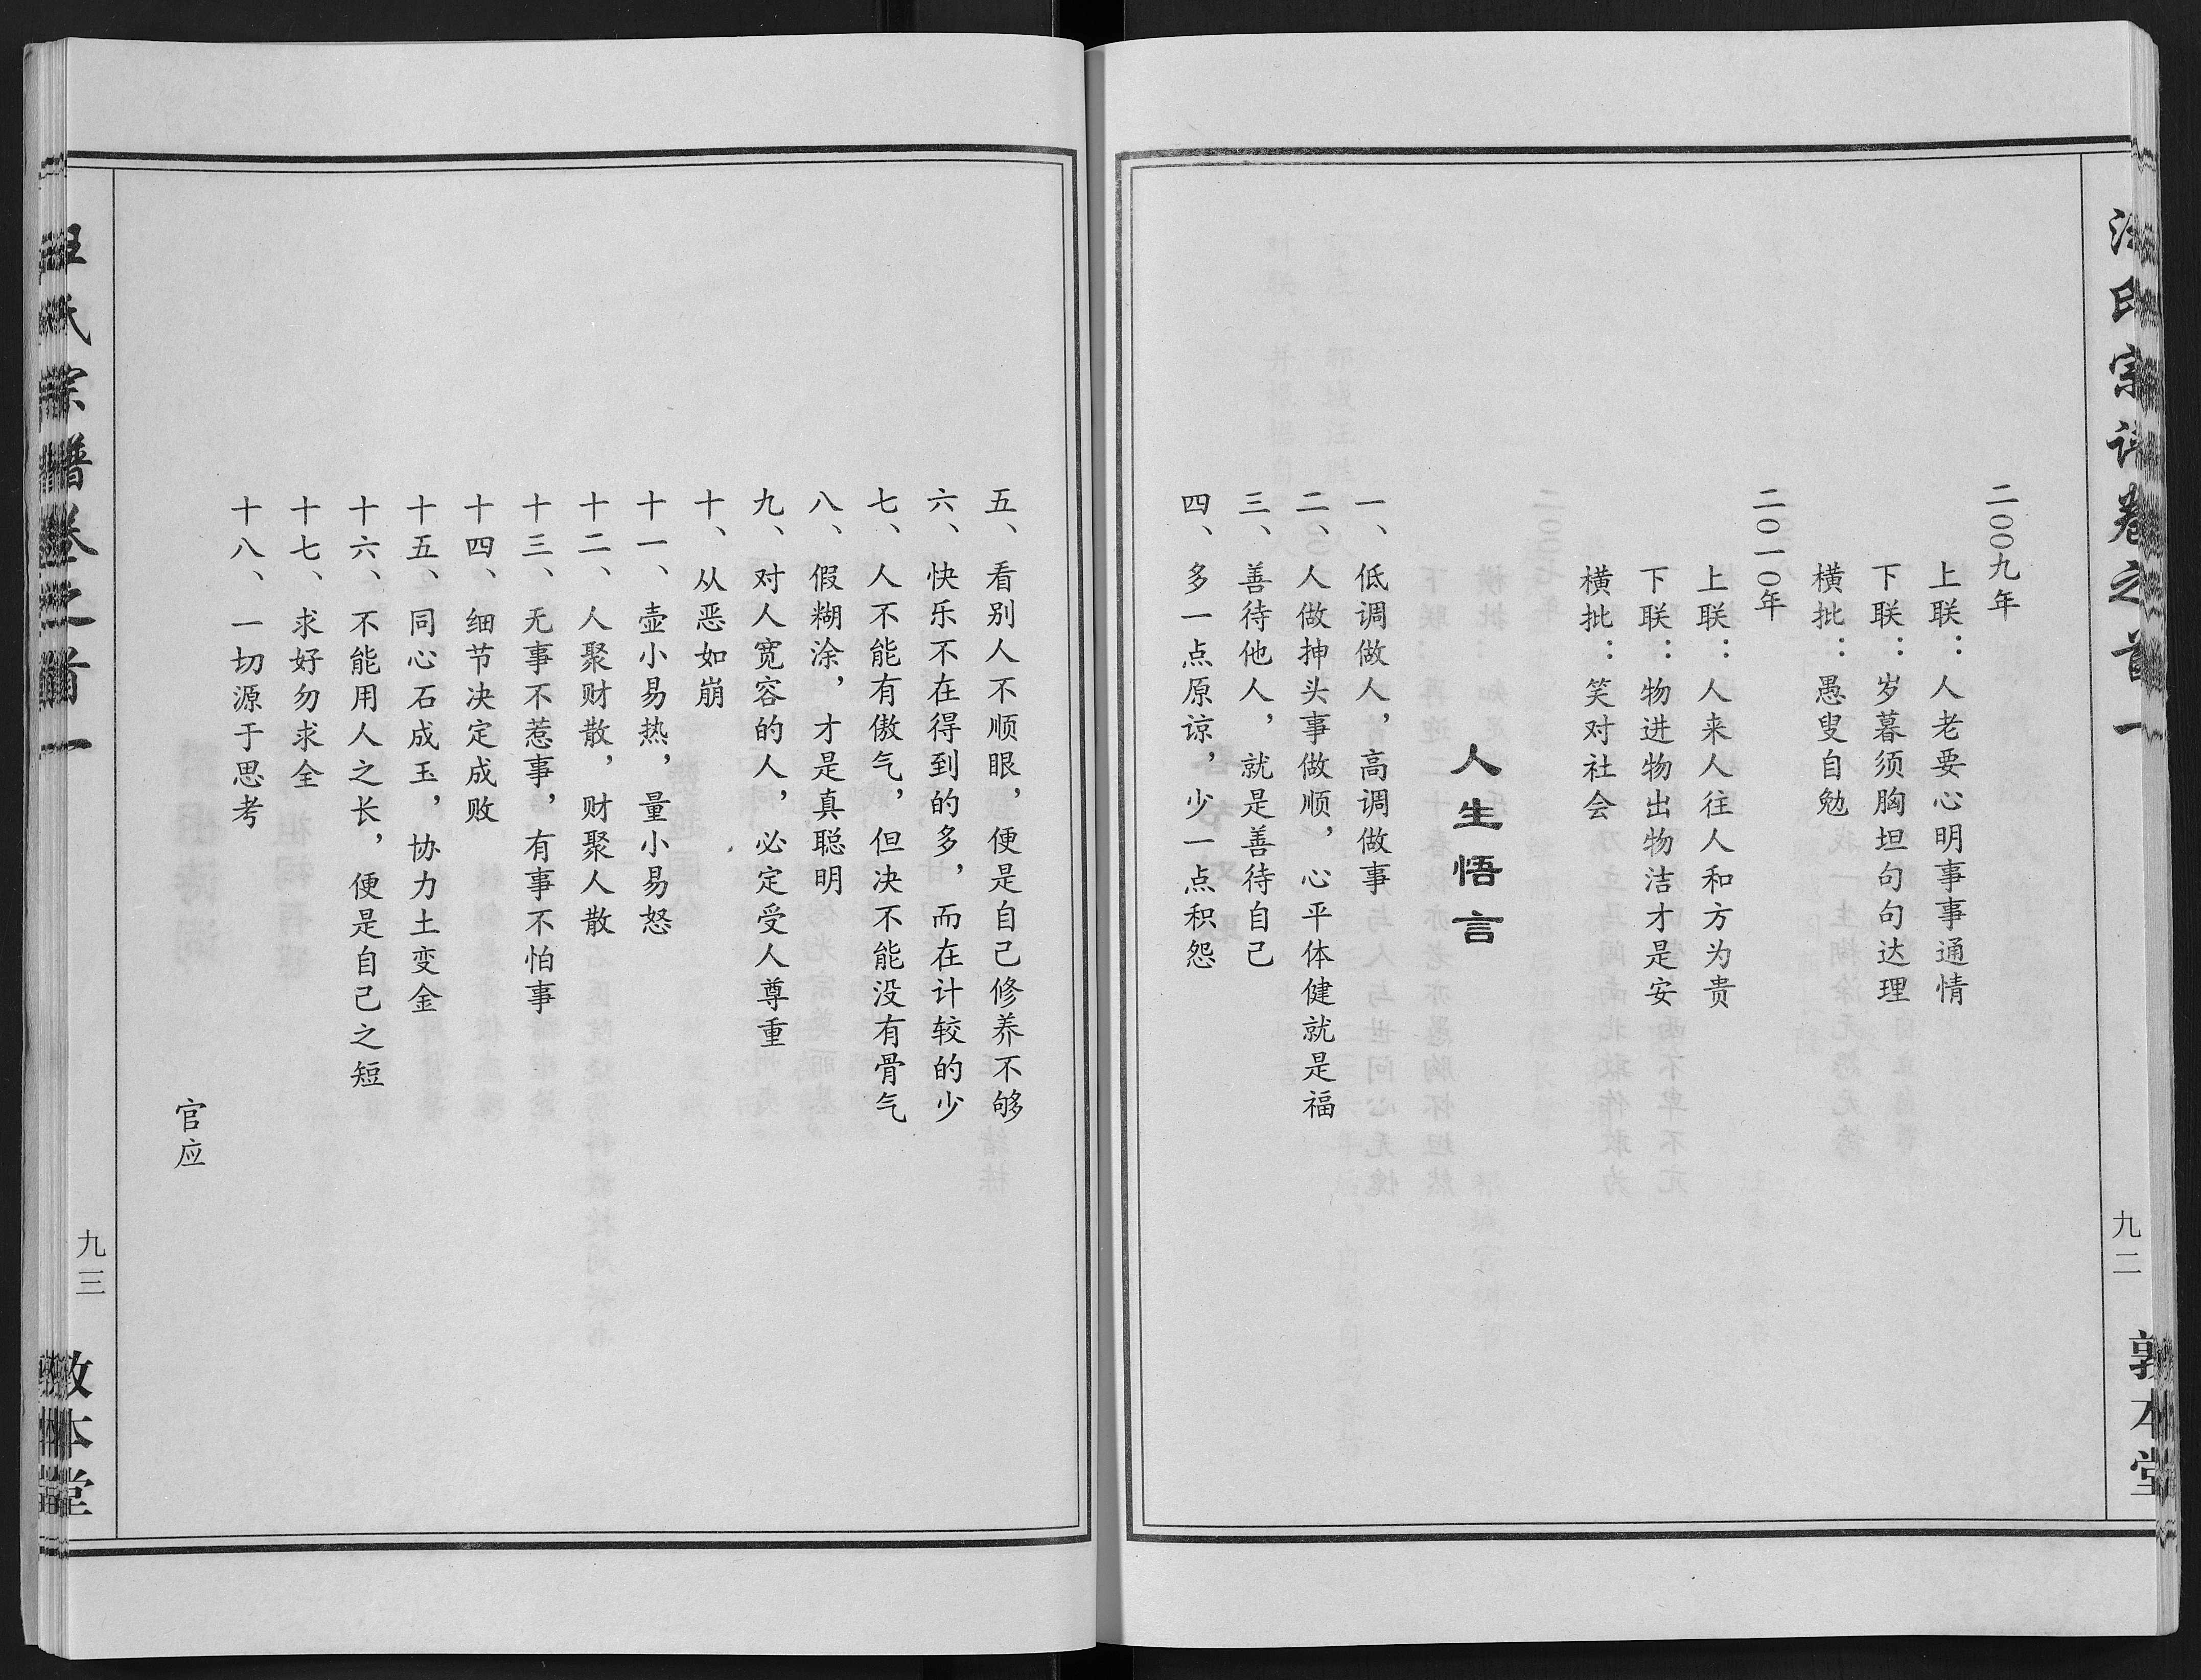 汪氏宗谱卷之首一
二〇〇九年
上联：人老要心明事事通情
下联：岁暮须胸坦句句达理
横批：愚叟自勉
二〇一〇年
上联：人来人往人和方为贵
下联：物进物出物洁才是安
横批：笑对社会
人生悟言
一、低调做人，高调做事
二、人做抻头事做顺，心平体健就是福
三、善待他人，就是善待自己
四、多一点原谅，少一点积怨
九二
敦本堂
五、看别人不顺眼，便是自己修养不够
六、快乐不在得到的多，而在计较的少
七、人不能有傲气，但决不能没有骨气
八、假糊涂，才是真聪明
九、对人宽容的人，必定受人尊重
十、从恶如崩
十一、壶小易热，量小易怒
十二、人聚财散，财聚人散
十三、无事不惹事，有事不怕事
十四、细节决定成败
十五、同心石成玉，协力土变金
十六、不能用人之长，便是自己之短
十七、求好勿求全
十八、一切源于思考
官应
汪氏宗谱卷之首一
九三
敦本堂